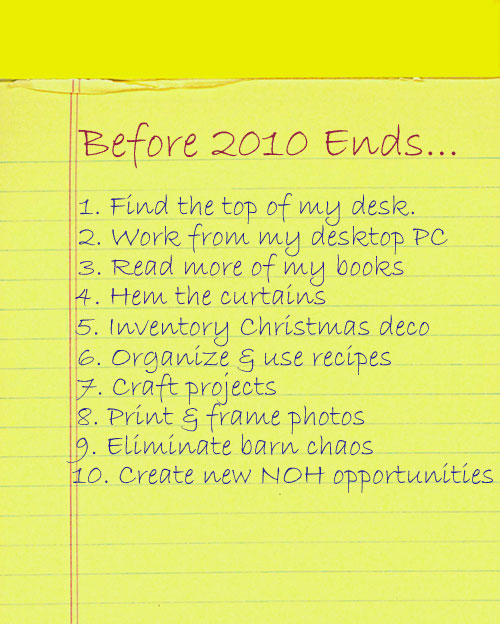 Before 2010 Ends...
1. Find the top of my desk.
2. Work from my desktop PC
3. Read more of my books
4. Hem the curtains
5. Inventory Christmas deco
6. Organize & use recipes
7. Craft projects
8. Print & frame photos
9. Eliminate barn chaos
10. Create new NOH opportunities